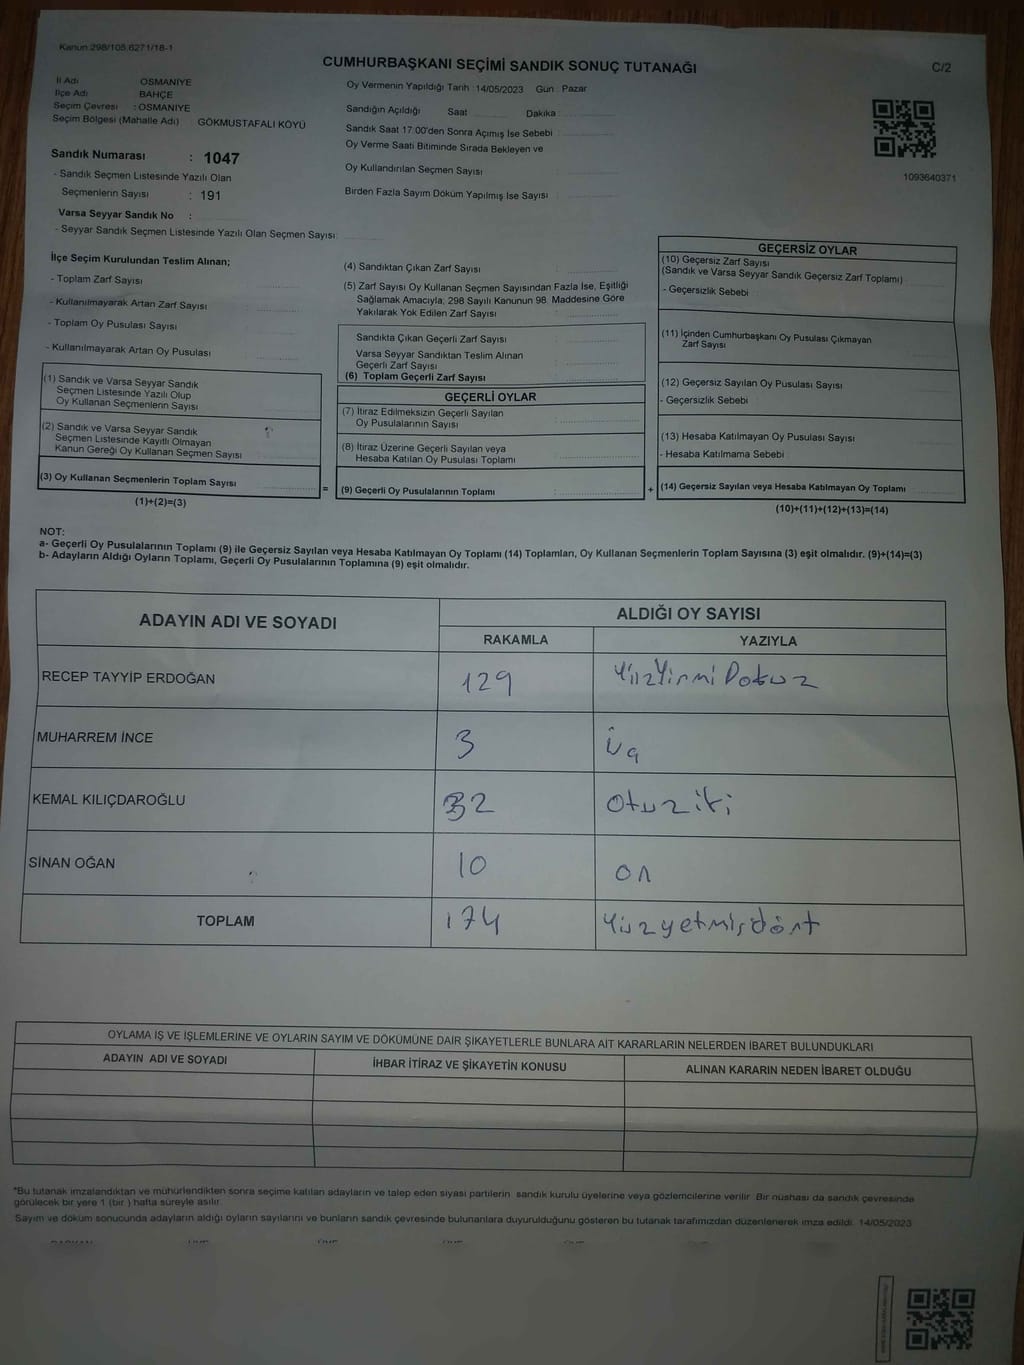 Kanun 298/105,6271/18-1
CUMHURBAŞKANI SEÇİMİ SANDIK SONUÇ TUTANAĞI
C/2
İl Adı OSMANİYE
İlçe Adı BAHÇE
Seçim Çevresi : OSMANİYE
Seçim Bölgesi (Mahalle Adı) GÖKMUSTAFALI KÖYÜ
Sandık Numarası : 1047
- Sandık Seçmen Listesinde Yazılı Olan
Seçmenlerin Sayısı : 191
Varsa Seyyar Sandık No :
- Seyyar Sandık Seçmen Listesinde Yazılı Olan Seçmen Sayısı:
Oy Vermenin Yapıldığı Tarih 14/05/2023 Gün : Pazar
Sandığın Açıldığı Saat Dakika
Sandık Saat 17:00'den Sonra Açımış İse Sebebi :
Oy Verme Saati Bitiminde Sırada Bekleyen ve
Oy Kullandırılan Seçmen Sayısı :
Birden Fazla Sayım Döküm Yapılmış İse Sayısı :
1093640371
İlçe Seçim Kurulundan Teslim Alınan;
- Toplam Zarf Sayısı
- Kullanılmayarak Artan Zarf Sayısı
- Toplam Oy Pusulası Sayısı
- Kullanılmayarak Artan Oy Pusulası
(1) Sandık ve Varsa Seyyar Sandık
Seçmen Listesinde Yazılı Olup
Oy Kullanan Seçmenlerin Sayısı :
(2) Sandık ve Varsa Seyyar Sandık
Seçmen Listesinde Kayıtlı Olmayan
Kanun Gereği Oy Kullanan Seçmen Sayısı
(3) Oy Kullanan Seçmenlerin Toplam Sayısı :
(1)+(2)=(3)
(4) Sandıktan Çıkan Zarf Sayısı :
(5) Zarf Sayısı Oy Kullanan Seçmen Sayısından Fazla İse, Eşitliği
Sağlamak Amacıyla; 298 Sayılı Kanunun 98. Maddesine Göre
Yakılarak Yok Edilen Zarf Sayısı :
Sandıkta Çıkan Geçerli Zarf Sayısı :
Varsa Seyyar Sandıktan Teslim Alınan
Geçerli Zarf Sayısı :
(6) Toplam Geçerli Zarf Sayısı
GEÇERLİ OYLAR
(7) İtiraz Edilmeksizin Geçerli Sayılan
Oy Pusulalarının Sayısı :
(8) İtiraz Üzerine Geçerli Sayılan veya
Hesaba Katılan Oy Pusulası Toplamı :
= (9) Geçerli Oy Pusulalarının Toplamı : +
GEÇERSİZ OYLAR
(10) Geçersiz Zarf Sayısı
(Sandık ve Varsa Seyyar Sandık Geçersiz Zarf Toplamı)
- Geçersizlik Sebebi
(11) İçinden Cumhurbaşkanı Oy Pusulası Çıkmayan
Zarf Sayısı
(12) Geçersiz Sayılan Oy Pusulası Sayısı
- Geçersizlik Sebebi
(13) Hesaba Katılmayan Oy Pusulası Sayısı
- Hesaba Katılmama Sebebi
(14) Geçersiz Sayılan veya Hesaba Katılmayan Oy Toplamı
(10)+(11)+(12)+(13)=(14)
NOT:
a- Geçerli Oy Pusulalarının Toplamı (9) ile Geçersiz Sayılan veya Hesaba Katılmayan Oy Toplamı (14) Toplamları, Oy Kullanan Seçmenlerin Toplam Sayısına (3) eşit olmalıdır. (9)+(14)=(3)
b- Adayların Aldığı Oyların Toplamı, Geçerli Oy Pusulalarının Toplamına (9) eşit olmalıdır.
ADAYIN ADI VE SOYADI ALDIĞI OY SAYISI
RAKAMLA YAZIYLA
RECEP TAYYİP ERDOĞAN 129 YüzYirmiDokuz
MUHARREM İNCE 3 Üç
KEMAL KILIÇDAROĞLU 32 Otuziki
SİNAN OĞAN 10 on
TOPLAM 174 Yüzyetmişdört
OYLAMA İŞ VE İŞLEMLERİNE VE OYLARIN SAYIM VE DÖKÜMÜNE DAİR ŞİKAYETLERLE BUNLARA AİT KARARLARIN NELERDEN İBARET BULUNDUKLARI
ADAYIN ADI VE SOYADI İHBAR İTİRAZ VE ŞİKAYETİN KONUSU ALINAN KARARIN NEDEN İBARET OLDUĞU
*Bu tutanak imzalandıktan ve mühürlendikten sonra seçime katılan adayların ve talep eden siyasi partilerin sandık kurulu üyelerine veya gözlemcilerine verilir. Bir nüshası da sandık çevresinde
görülecek bir yere 1 (bir ) hafta süreyle asılır.
Sayım ve döküm sonucunda adayların aldığı oyların sayılarını ve bunların sandık çevresinde bulunanlara duyurulduğunu gösteren bu tutanak tarafımızdan düzenlenerek imza edildi. 14/05/2023